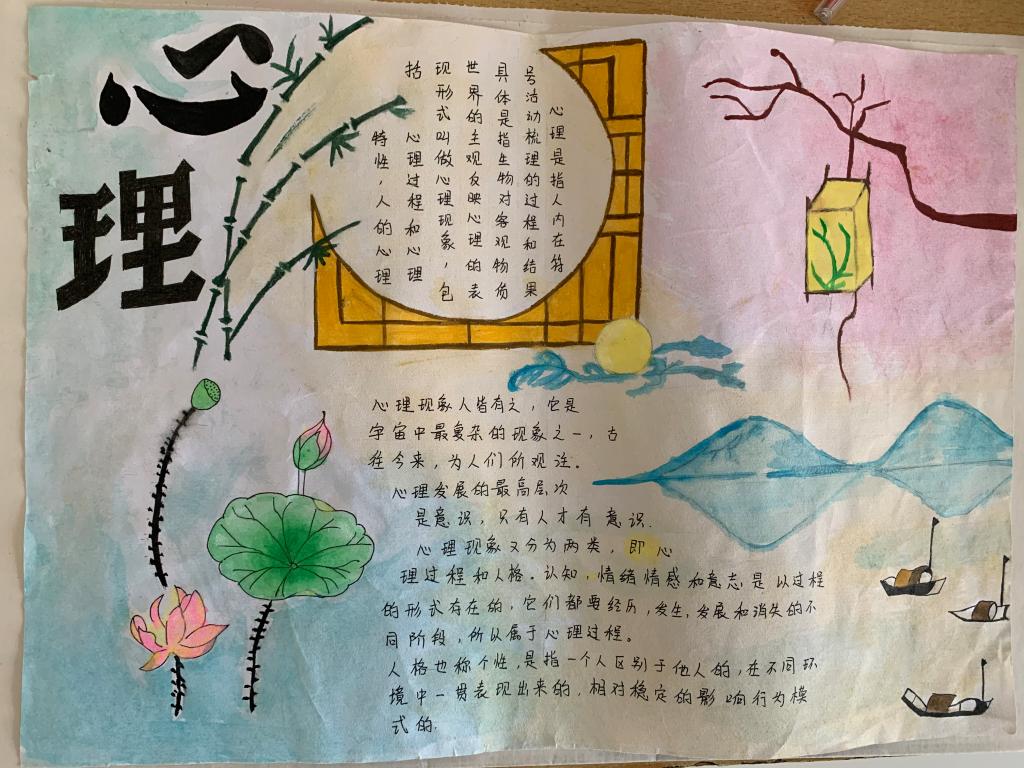 心理
心理是指人内在符
号活动梳理的过程和结果
具体是指生物对客观物伤
世界的主观反映心理的表
现形式叫做心理现象，包
括心理过程和心理
特性，人的心理
心理现象人皆有之，它是
宇宙中最复杂的现象之一，古
往今来，为人们所观注。
心理发展的最高层次
是意识，只有人才有意识.
心理现象又分为两类，即心
理过程和人格。认知，情绪情感和意志是以过程
的形式存在的，它们都要经历，发生，发展和消失的不
同阶段，所以属于心理过程。
人格也称个性，是指一个人区别于他人的，在不同环
境中一贯表现出来的，相对稳定的影响行为模
式的.